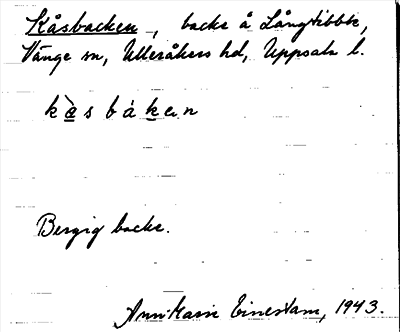 Kåsbacken, backe å Långtibble,
Vänge sn, Ulleråkers hd, Uppsala l.
kåsbáken
Bergig backe.
Ann-Marie Einerstam, 1943.